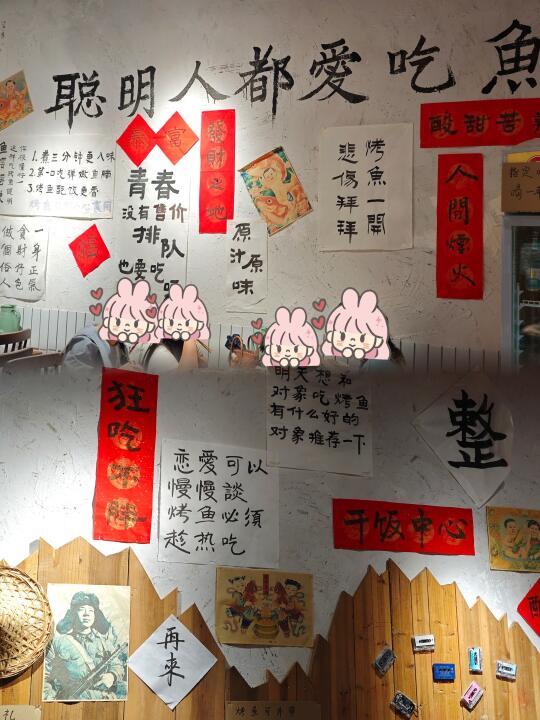 聪明人都愛吃魚
1.煮三分钟更入味
2.第一口先嚐魚腩
3.烤鱼配饭更香
暴富
發財之地
青春
没有售价
排队
也要吃
烤魚一開
悲傷拜拜
酸甜苦
人間煙火
一身正氣
貪財好色
做個俗人
原汁原味
明天想和
对象吃烤鱼
有什么好的
对象推荐一下
狂吃不胖
恋爱可以
慢慢談
烤鱼必须
趁热吃
整
干饭中心
再來